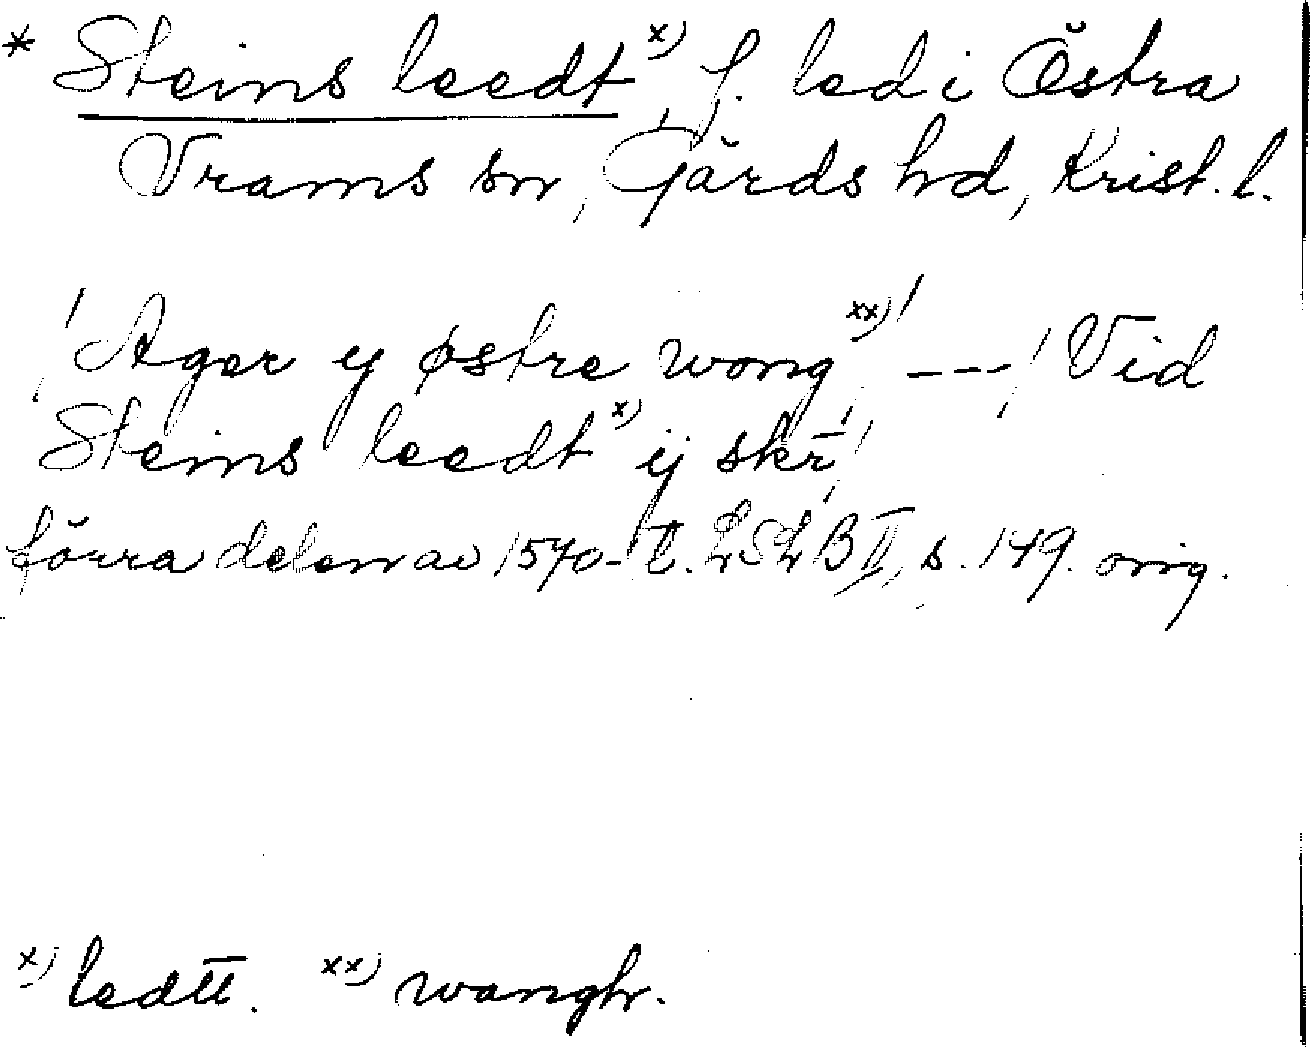 * Steins leedt x), f. led i Östra
Vrams sn, Gärds hd, Krist. l.
'Ager y østre wong xx)' ---, 'Vid
Steins leedt x) ij skr̄'
förra delen av 1570-t. LSLB II, s. 149. orig.
x) ledtt. xx) wangh.